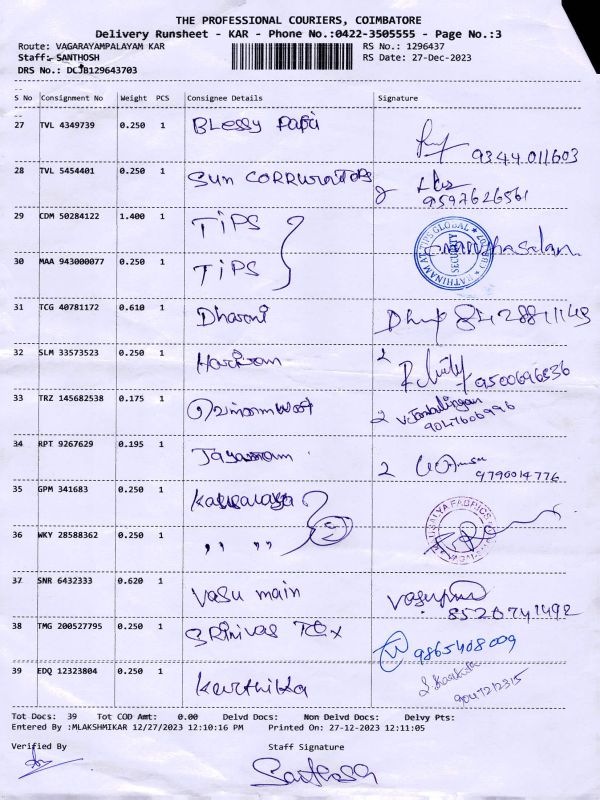 THE PROFESSIONAL COURIERS, COIMBATORE
Delivery Runsheet - KAR - Phone No.:0422-3505555 - Page No.:3
Route: VAGARAYAMPALAYAM KAR RS No.: 1296437
Staff: SANTHOSH RS Date: 27-Dec-2023
DRS No.: DCJB129643703
S No Consignment No Weight PCS Consignee Details Signature
27 TVL 4349739 0.250 1 Blessy Papi
9344011603
28 TVL 5454401 0.250 1 Sun CORRUGATORS
9597626561
29 CDM 50284122 1.400 1 TIPS
30 MAA 943000077 0.250 1 TIPS
SECURITY
31 TCG 40781172 0.610 1 Dharani 8428811148
32 SLM 33573523 0.250 1 Hariram
2 9500696836
33 TRZ 145682538 0.175 1
2 9047606996
34 RPT 9267629 0.195 1 Jayaram
2 9790014776
35 GPM 341683 0.250 1 Kausalaya
36 WKY 28588362 0.250 1 ,, ,,
37 SNR 6432333 0.620 1 Vasu main
8520741492
38 TMG 200527795 0.250 1 Srinivas Tex 9865408009
39 EDQ 12323804 0.250 1 Karthika
9047212315
Tot Docs: 39 Tot COD Amt: 0.00 Delvd Docs: Non Delvd Docs: Delvy Pts:
Entered By :MLAKSHMIKAR 12/27/2023 12:10:16 PM Printed On: 27-12-2023 12:11:05
Verified By Staff Signature
Santhosh